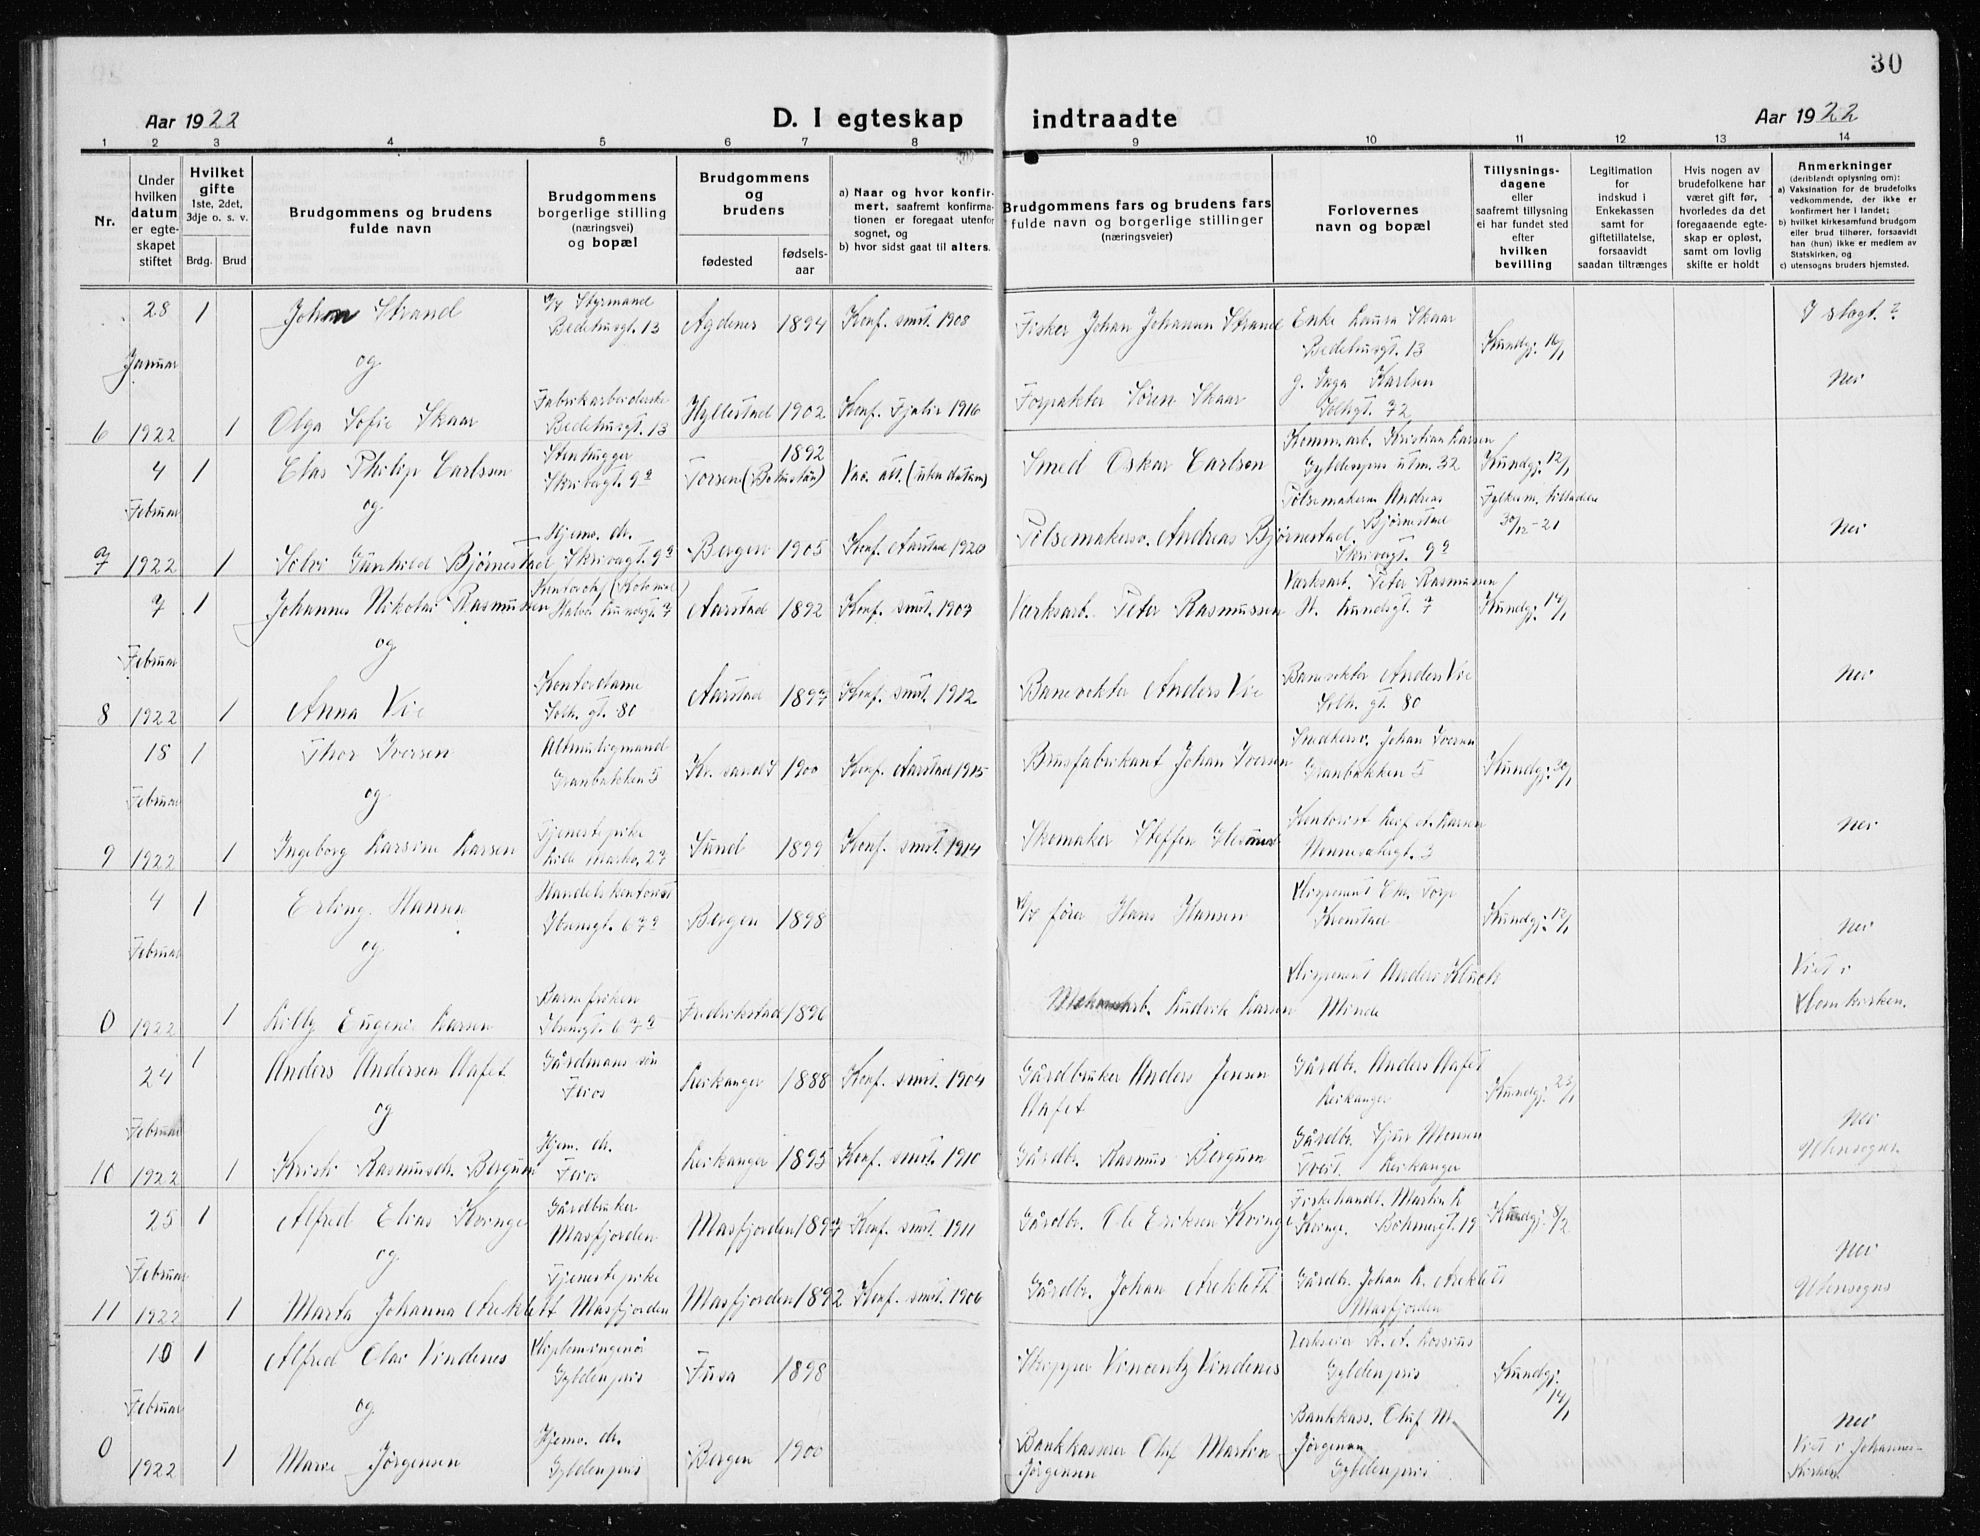 30
Aar 1922 D. I egteskap indtraadte Aar 1922
1 2 3 4 5 6 7 8 9 10 11 12 13 14
Nr.
Under hvilken datum er egteskapet stiftet
Hvilket gifte 1ste, 2det, 3dje o. s. v.
Brdg. Brud
Brudgommens og brudens fulde navn
Brudgommens borgerlige stilling (næringsvei) og bopæl
Brudgommens og brudens
fødested fødsels-aar
a) Naar og hvor konfirmert, saafremt konfirmationen er foregaat utenfor sognet, og
b) hvor sidst gaat til alters.
Brudgommens fars og brudens fars fulde navn og borgerlige stillinger (næringsveier)
Forlovernes navn og bopæl
Tillysningsdagene eller saafremt tillysning ei har fundet sted efter hvilken bevilling
Legitimation for indskud i Enkekassen samt for giftetillatelse, forsaavidt saadan tiltrænges
Hvis nogen av brudefolkene har været gift før, hvorledes da det foregaaende egteskap er opløst, samt om lovlig skifte er holdt
Anmerkninger (deriblandt oplysning om):
a) Vaksination for de brudefolks vedkommende, der ikke er konfirmert her i landet;
b) hvilket kirkesamfund brudgom eller brud tilhører, forsaavidt han (hun) ikke er medlem av Statskirken, og
c) utensogns bruders hjemsted.
28 1 Johan Strand Styrmand Bedehusgt. 13 Agdenes 1894 Konf. smst. 1908 Fisker Johan Johansen Strand Enke Laura Skaar Bedehusgt. 13 Kundgj. 16/1 I slægt?
Januar og
6 1922 1 Olga Sofie Skaar Fabrikarbeiderske Bedehusgt. 13 Hyllestad 1902 Konf. Fjaler 1916 Forpakter Søren Skaar g. Inga Karlsen Solhgt. 72 Nei
4 1 Elas Philip Carlsen Stenhugger Skrivergt. 9a Torsen (Bohuslän) 1892 Vac. att. (uten datum) Smed Oskar Carlson Komm.arb. Kristian Larsen Gyldenpris utm. 32 Kundgj. 12/1
Februar og
7 1922 1 Solvi Gunhild Bjørnestad Hjemv. dr. Skrivergt. 9a Bergen 1905 Konf. Aarstad 1920 Pølsemakersv. Andreas Bjørnestad Pølsemakersv. Andreas Bjørnestad Skrivergt. 9a Fylkesm. tilladelse 30/12-21 Nei
7 1 Johannes Nikolai Rasmussen Aarstad 1892 Konf. smst. 1907 Verksarb. Peter Rasmussen Verksarb. Peter Rasmussen Kundgj. 14/1
Februar og
8 1922 1 Anna Vie Kontordame Solh. gt. 80 Aarstad 1897 Konf. smst. 1912 Banevokter Anders Vie Banevokter Anders Vie Solh. gt. 80 Nei
18 1 Thor Iversen Altmuligmand Granbakken 5 Kr.sand S 1900 Konf. Aarstad 1915 Brusfabrikant Johan Iversen Snekkersv. Johan Iversen Granbakken 5 Kundgj. 30/1
Februar og
9 1922 1 Ingeborg Larsine Larsen Tjenestepike 27 Sund 1899 Konf. smst. 1914 Skomaker Steffen Kontorist Larsen 3 Nei
4 1 Erling Hansen Handelskontorist Ibsensgt. 67a Bergen 1898 fører Hans Hansen Disponent Torp Kronstad Kundgj. 12/1 Nei
Februar og
0 1922 1 Lilly Eugenie Larsen Barnefrøken Ibsensgt. 67a Fredrikstad 1896 Ludvik Larsen Disponent Anders Minde Viet i Domkirken.
24 1 Anders Andersen Aafet Gårdmans søn Feios Leikanger 1888 Konf. smst. 1904 Gårdbruker Anders Jensen Aafet Gårdbr. Anders Aafet Leikanger Kundgj. 23/1
Februar og
10 1922 1 Kristi Rasmusdr. Bergum Hjem. dr. Feios Leikanger 1895 Konf. smst. 1910 Gårdbr. Rasmus Bergum Gårdbr. Sjur Monsen Tveit. Leikanger Nei Utensogns.
25 1 Alfred Elias Kvinge Gårdbruker Masfjorden Masfjorden 1897 Konf. smst. 1911 Gårdbr. Ole Eriksen Kvinge Fiskehandl. Martin Kvinge. Bøhmergt. 19 Kundgj. 8/2
Februar og
11 1922 1 Marta Johanna Areklett Tjenestepike Masfjorden Masfjorden 1892 Konf. smst. 1906 Gårdbr. Johan Areklett Gårdbr. Johan A. Areklett Masfjorden Nei Utensogns
10 1 Alfred Olai Vindenes Diplomingeniør Gyldenpris Fusa 1898 Skipper Vincentz Vindenes Gyldenpris Kundgj. 14/1
Februar og
0 1922 1 Marie Jørgensen Hjemv. dr. Gyldenpris Bergen 1900 Bankkasserer Oluf Martin Jørgensen Bankkass. Oluf M. Jørgensen Gyldenpris Nei Viet i Johanneskirken